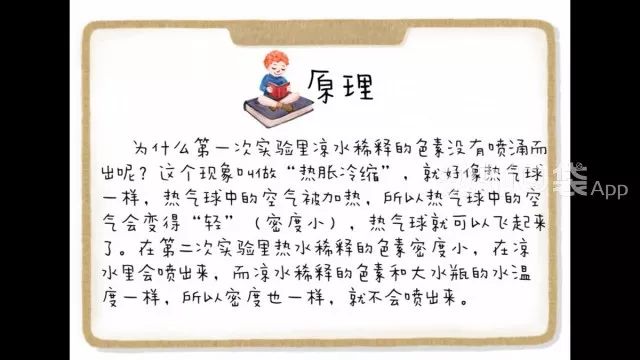 原理
为什么第一次实验里凉水稀释的色素没有喷涌而
出呢？这个现象叫做“热胀冷缩”，就好像热气球
一样，热气球中的空气被加热，所以热气球中的空
气会变得“轻”（密度小），热气球就可以飞起来
了。在第二次实验里热水稀释的色素密度小，在凉
水里会喷出来，而凉水稀释的色素和大水瓶的水温
度一样，所以密度也一样，就不会喷出来。
袋App